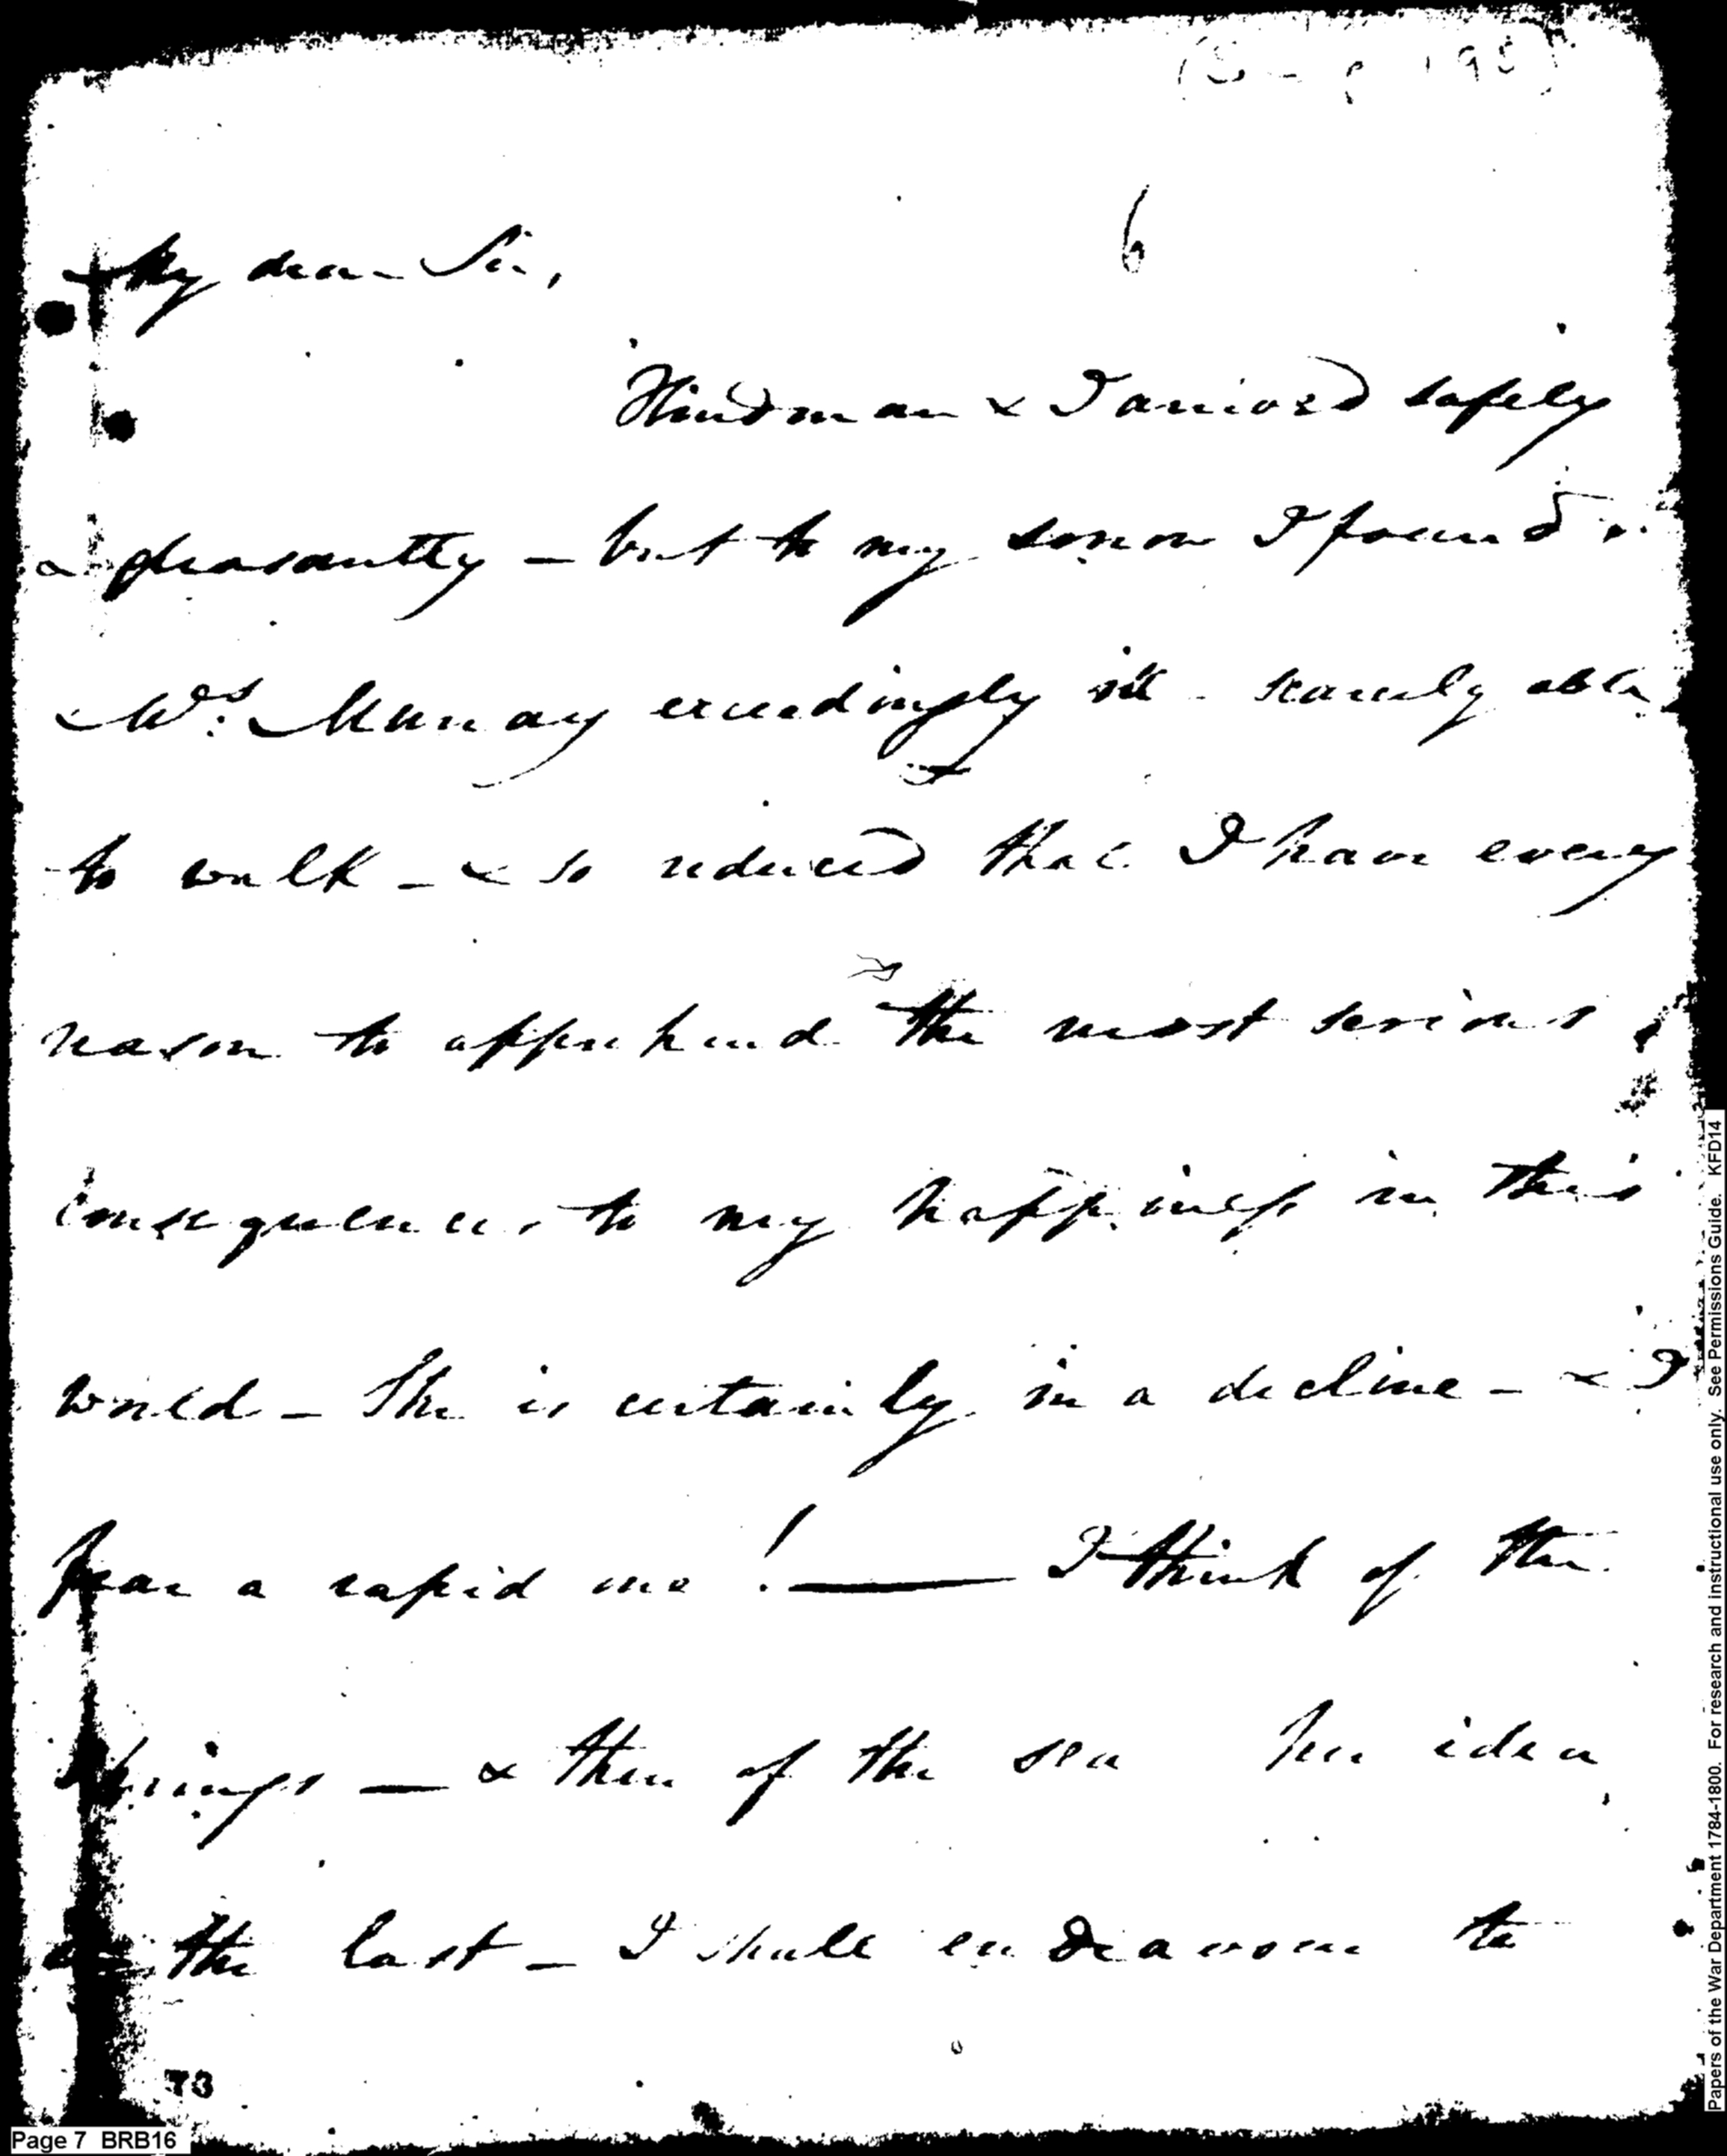 6
My dear Sir,
Hindman & I arrived safely
& pleasantly – but to my sorrow I found
Mrs. Murray exceedingly ill – scarcely able
to walk – & so reduced that I have every
reason to apprehend the most serious
consequences to my happiness in this
world – She is certainly in a decline – & I
fear a rapid one ! — I think of the
springs — & then of the sea her idea
the last – I shall endeavour to
73
Page 7 BRB16
Papers of the War Department 1784-1800. For research and instructional use only. See Permissions Guide. KFD14